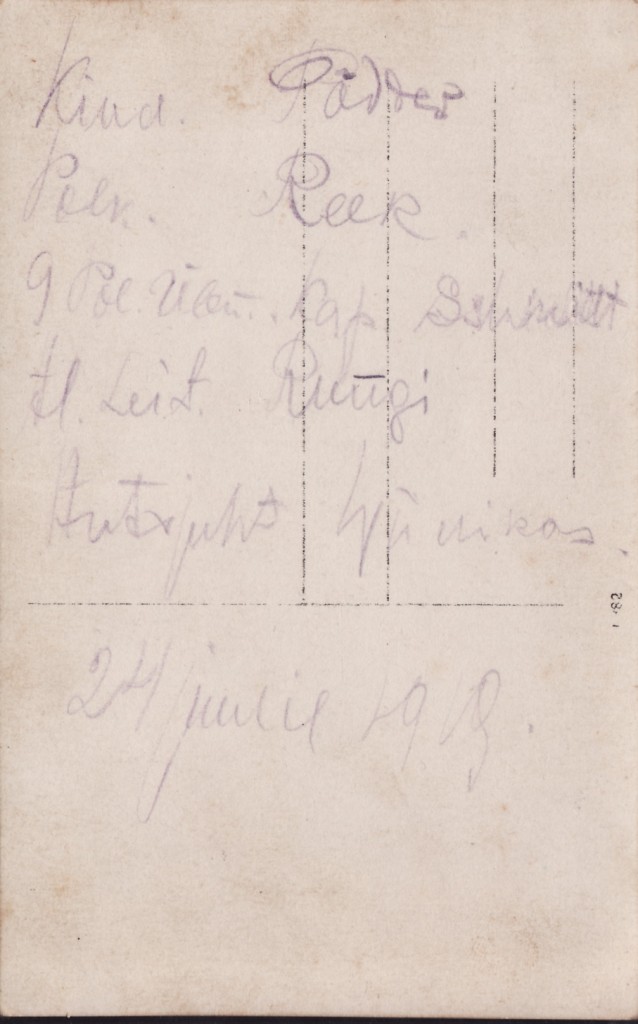 Kind. Põdder
Polk. Reek.
9 Pol. Ülem. Kap. Schmidt
tl. Leit. Rungi
Autojuht
24 junil 1919.
28.